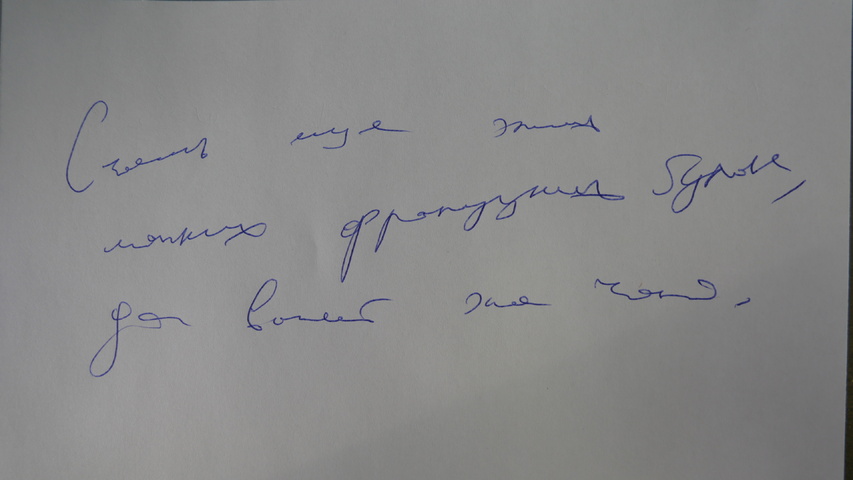 Съешь еще этих
мягких французских булок,
да выпей же чаю.